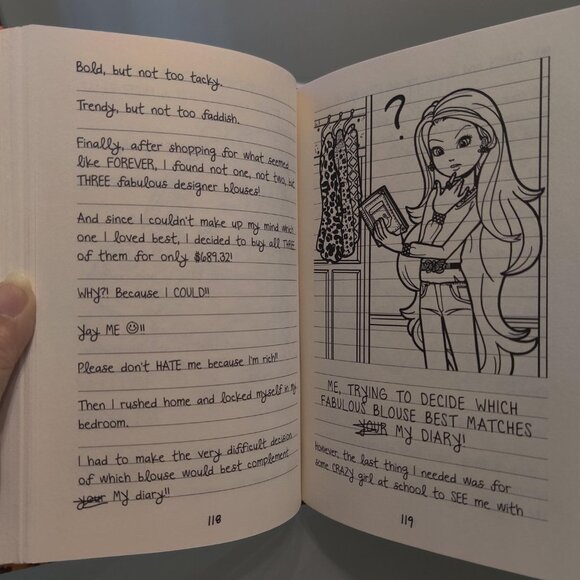 Bold, but not too tacky.
Trendy, but not too faddish.
Finally, after shopping for what seemed
like FOREVER, I found not one, not two, but
THREE fabulous designer blouses!
And since I couldn't make up my mind which
one I loved best, I decided to buy all THREE
of them for only $689.32!
WHY?! Because I COULD!!
Yay ME ☺!!
Please don't HATE me because I'm rich!!
Then I rushed home and locked myself in my
bedroom.
I had to make the very difficult decision
of which blouse would best complement
your MY diary!!
118
?
ME, TRYING TO DECIDE WHICH
FABULOUS BLOUSE BEST MATCHES
YOUR MY DIARY!
However, the last thing I needed was for
some CRAZY girl at school to SEE me with
119